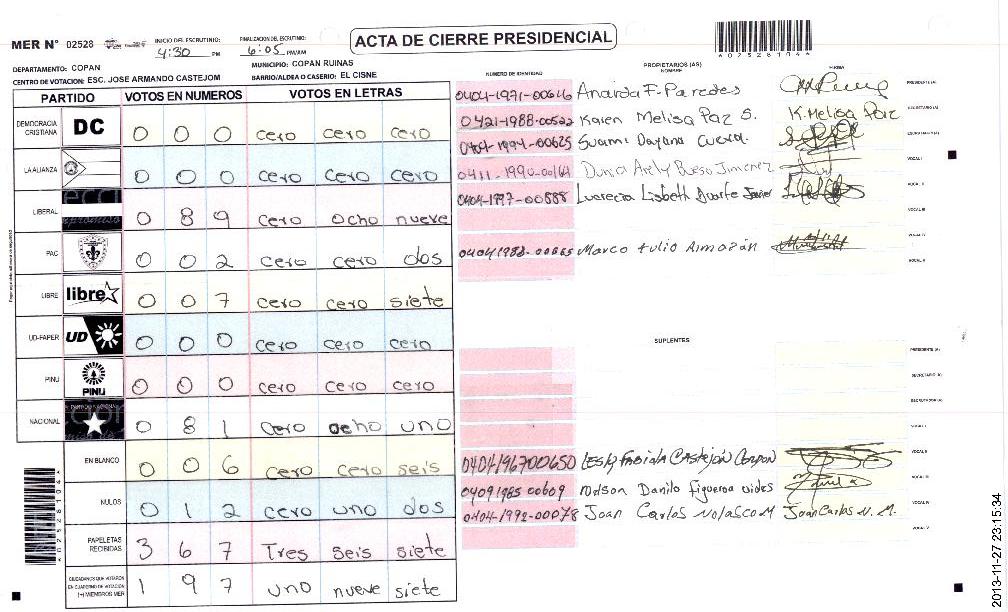 MER N° 02528
INICIO DEL ESCRUTINIO: 4:30 PM
FINALIZACION DEL ESCRUTINIO: 6:05 PM/AM
ACTA DE CIERRE PRESIDENCIAL
*02528104*
DEPARTAMENTO: COPAN
MUNICIPIO: COPAN RUINAS
CENTRO DE VOTACION: ESC. JOSE ARMANDO CASTEJOM
BARRIO/ALDEA O CASERIO: EL CISNE
PARTIDO VOTOS EN NUMEROS VOTOS EN LETRAS
DEMOCRACIA CRISTIANA DC 0 0 0 cero cero cero
LA ALIANZA 0 0 0 cero cero cero
LIBERAL 0 8 9 cero ocho nueve
PAC 0 0 2 cero cero dos
LIBRE libre 0 0 7 cero cero siete
UD-FAPER UD 0 0 0 cero cero cero
PINU PINU 0 0 0 cero cero cero
NACIONAL 0 8 1 cero ocho uno
EN BLANCO 0 0 6 cero cero seis
NULOS 0 1 2 cero uno dos
PAPELETAS RECIBIDAS 3 6 7 Tres seis siete
CIUDADANOS QUE VOTARON EN CUADERNO DE VOTACION (+) MIEMBROS MER 1 9 7 uno nueve siete
*02528104*
NUMERO DE IDENTIDAD
PROPIETARIOS (AS)
NOMBRE
FIRMA
0404-1971-00616 Amanda F. Paredes PRESIDENTE (A)
0421-1988-00522 Karen Melisa Paz S. K. Melisa Paz SECRETARIO (A)
0404-1994-00625 Suanni Dayana Cueva. ESCRUTADOR (A)
0411-1990-00161 Dunia Arely Bueso Jimenez VOCAL I
0404-1997-00888 Lucrecia Lisbeth Duarte Javier VOCAL II
VOCAL III
0404 1988-00665 Marco tulio Almazán VOCAL IV
VOCAL V
SUPLENTES
PRESIDENTE (A)
SECRETARIO (A)
ESCRUTADOR (A)
VOCAL I
0404196700650 LESKY FABIOLA CASTEJON VOCAL II
0409 1985 00609 Nelson Danilo Figueroa vides VOCAL III
0404-1992-00078 Joan Carlos Nolasco M Joan Carlos N. M. VOCAL IV
VOCAL V
2013-11-27 23:15:34